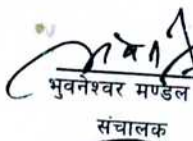 भुवनेश्वर मण्डल
संचालक